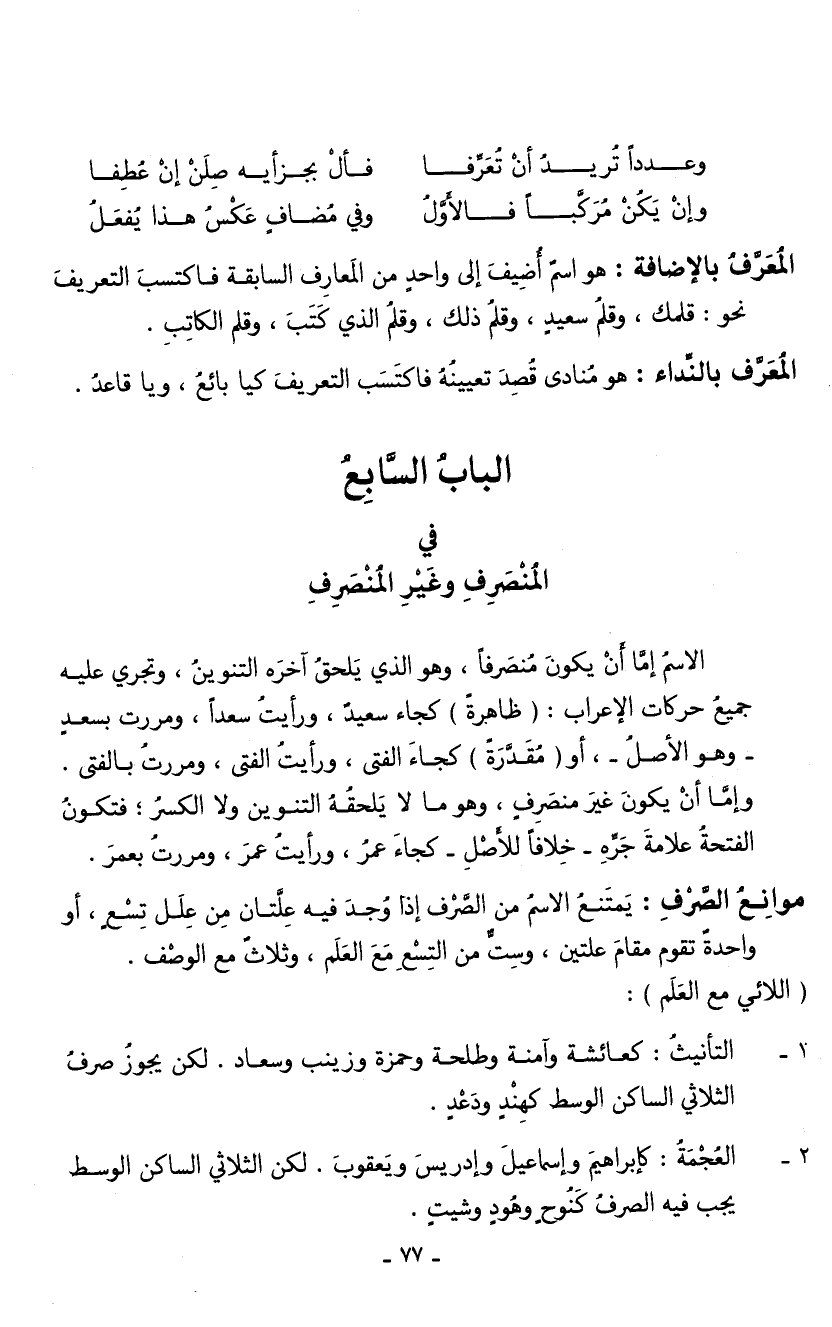 وعـدداً تُريـدُ أنْ تُعَرِّفـا فـألْ بجـزأيـه صِلَنْ إنْ عُطِفـا
وإنْ يَكُنْ مُرَكَّبـاً فـالأَوَّلُ وفي مُضـافٍ عَكْسُ هـذا يُفعَلُ
المُعَرَّفُ بالإضافة : هو اسمٌ أُضِيفَ إلى واحدٍ من المَعارِف السابقـة فـاكتسبَ التعريفَ
نحو : قلمك ، وقلمُ سعيدٍ ، وقلمُ ذلك ، وقلمُ الذي كَتَبَ ، وقلم الكاتِبِ .
المُعَرَّف بالنِّداء : هو مُنادى قُصِدَ تعيينُهُ فاكتَسَب التعريفَ كيا بائعُ ، ويا قاعدُ .
البابُ السَّابِعُ
في
المُنْصَرِفِ وغَيْرِ المُنْصَرِفِ
الاسمُ إمَّا أَنْ يكونَ مُنصَرفاً ، وهو الذي يَلحقُ آخرَه التنوينُ ، وتجري عليـه
جميعُ حركات الإعراب : ( ظاهرةً ) كجاء سعيدٌ ، ورأيتُ سعداً ، ومررت بسعـدٍ
ـ وهـو الأصـلُ ـ ، أو ( مُقَدَّرَةً ) كجـاءَ الفتى ، ورأيتُ الفتى ، ومررتُ بـالفتى .
وإمَّـا أنْ يكونَ غيرَ منصَرِفٍ ، وهو مـا لا يَلحقُـهُ التنـوين ولا الكسرُ ؛ فتكـونُ
الفتحةُ علامةَ جَرِّهِ ـ خلافاً للأَصْلِ ـ كجاءَ عمرُ ، ورأيتُ عمرَ ، ومررتُ بعمرَ .
موانِـعُ الصَّرْفِ : يَمتَنـعُ الاسمُ من الصَّرْف إذا وُجـدَ فيـه عِلَّتـان مِن عِلَـل تِسْـعٍ ، أو
واحدةً تقوم مقامَ علتين ، وسِتٌّ من التِسْعِ مَعَ العَلَم ، وثلاثٌ مع الوصْف .
( اللائي مع العَلَم ) :
١ ـ التأنيثُ : كعـائشـة وآمنـة وطلحـة وحمزة وزينب وسعـاد . لكن يجوزُ صرفُ
الثلاثي الساكن الوسط كهِنْدٍ ودَعْدٍ .
٢ ـ العُجْمَةُ : كإبراهيمَ وإسماعيلَ وإدريسَ ويَعقوبَ . لكن الثلاثي الساكن الوسـط
يجب فيه الصرفُ كَنُوحٍ وهُودٍ وشيتٍ .
ـ ٧٧ ـ